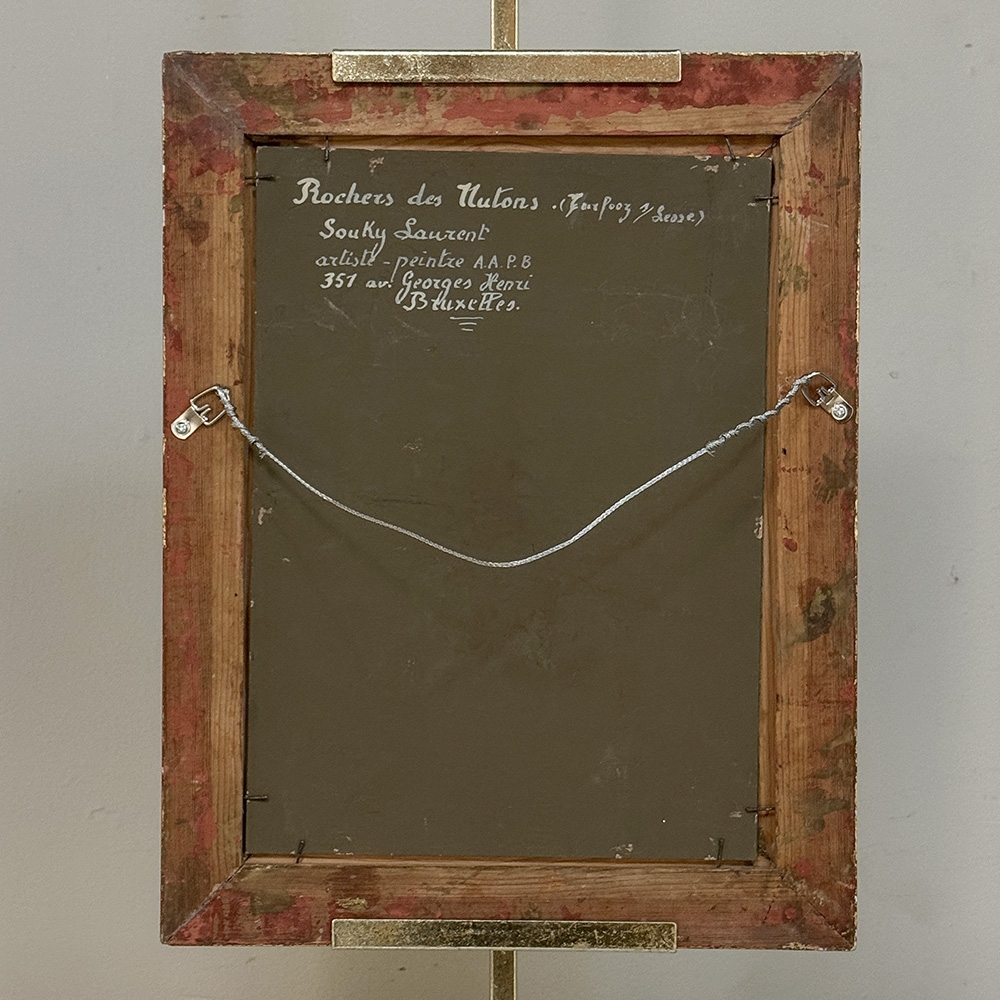 Rochers des Nutons . (Furfooz s/ Lesse)
Souky Laurent
artiste-peintre A.A.P.B
351 av. Georges Henri
Bruxelles.